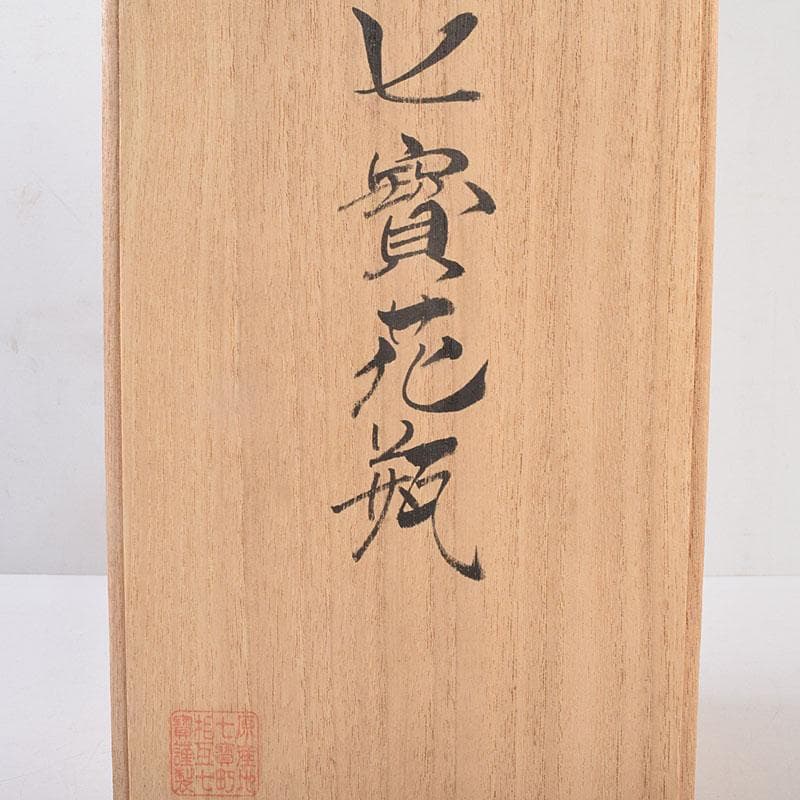 七寶花瓶
原産地
七寳町
相互七
寳謹製